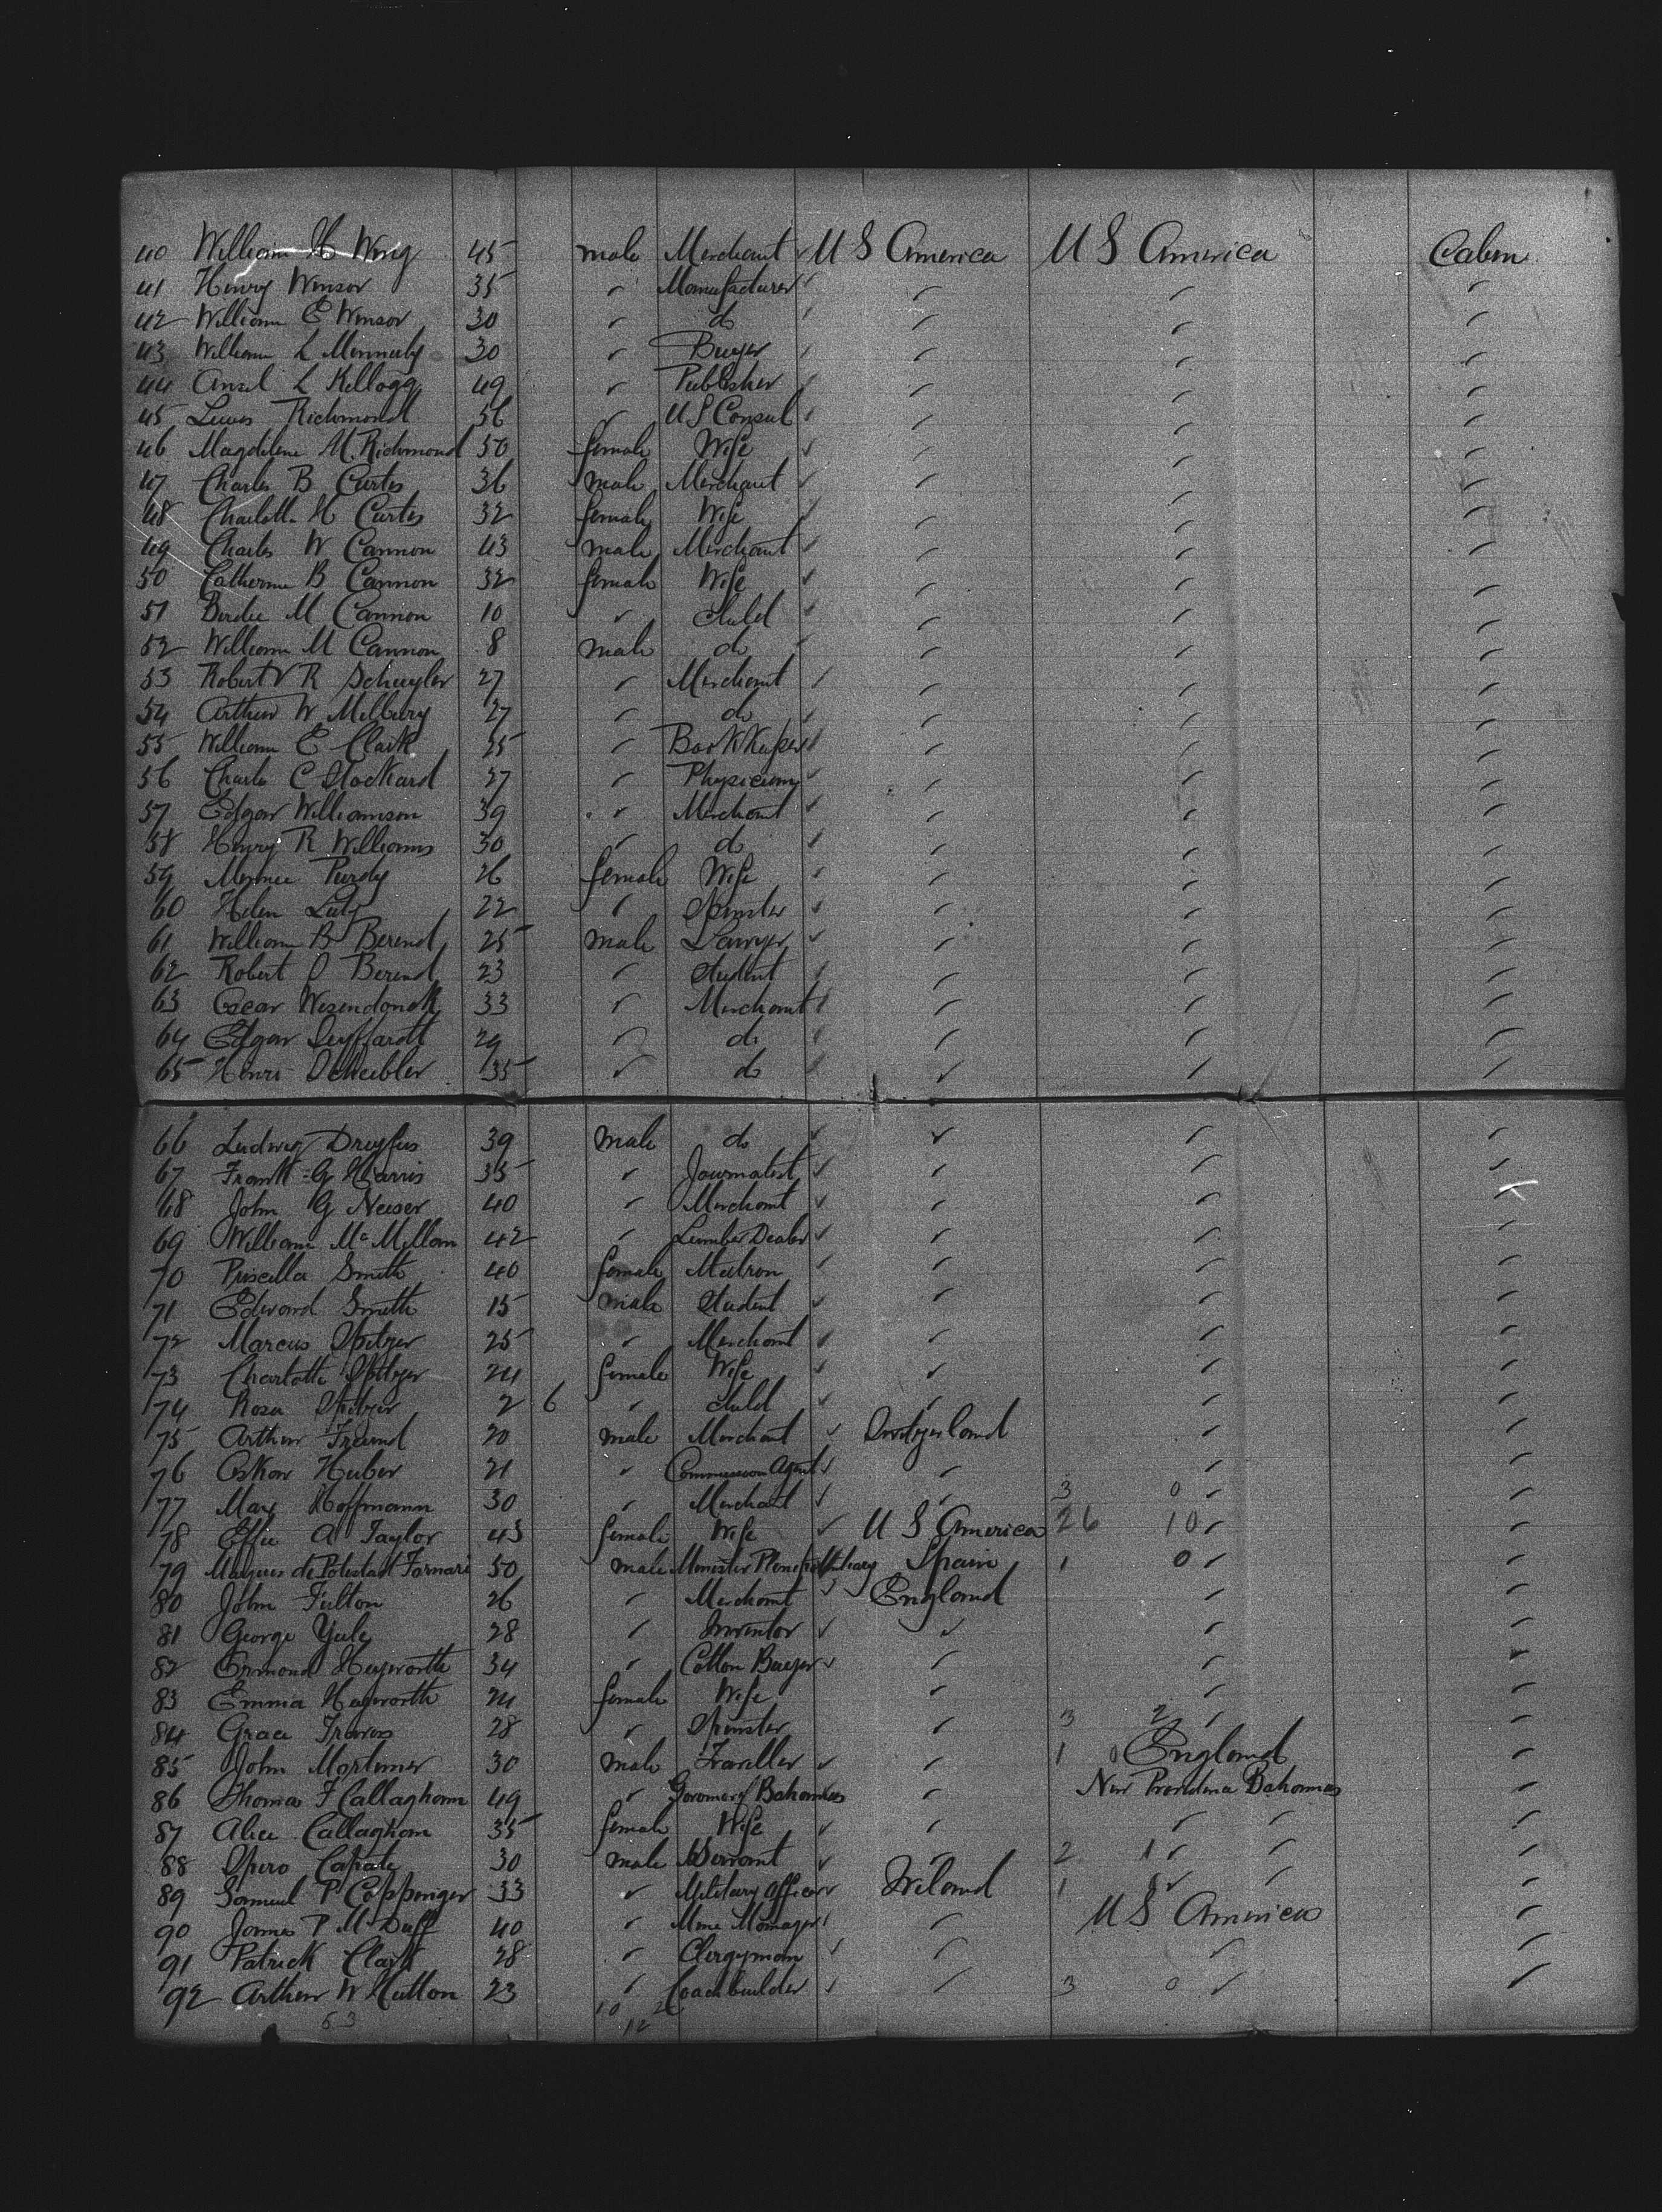 40 William H Wing 45 male Merchant ✓ U S America U S America Cabin
41 Henry Winsor 35 " Manufacturer ✓ " " "
42 William E Winsor 30 " do " " "
43 William L 30 " Buyer " " "
44 Ansel L Kellogg 49 " Publisher ✓ " " "
45 Lewis Richmond 56 " U S Consul " " "
46 Magdelene M. Richmond 50 female Wife ✓ " " "
47 Charles B Curtis 36 male Merchant ✓ " " "
48 Charlotte H Curtis 32 female Wife ✓ " " "
49 Charles W Cannon 43 male Merchant ✓ " " "
50 Catherine B Cannon 32 female Wife ✓ " " "
51 Birdie M Cannon 10 " child ✓ " " "
52 William M Cannon 8 male do ✓ " " "
53 Robert V R Schuyler 27 " Merchant ✓ " " "
54 Arthur W Milbury 27 " do ✓ " " "
55 William E Clark " Book Keeper ✓ " " "
56 Charles C Stockard 27 " Physician ✓ " " "
57 Edgar Williamson 39 " Merchant ✓ " " "
58 Henry R Williams 30 " do ✓ " " "
59 Purdy 26 female Wife ✓ " " "
60 Helen 22 " Spinster ✓ " " "
61 William B Berend 25 male Lawyer ✓ " " "
62 Robert Berend 23 " Student ✓ " " "
63 Oscar Wesendonck 33 " Merchant ✓ " " "
64 Edgar Seyffardt 29 " do ✓ " " "
65 Henri Scheibler 35 " do ✓ " " "
66 Ludwig Dreyfus 39 male do ✓ " " "
67 Frank G Harris 35 " Journalist ✓ " " "
68 John G Neeser 40 " Merchant ✓ " " "
69 William McMillan 42 " Lumber Dealer ✓ " " "
70 Priscilla Smith 40 female Matron ✓ " " "
71 Edward Smith 15 male Student ✓ " " "
72 Marcus Spitzer 25 " Merchant ✓ " " "
73 Charlotte Spitzer 24 female Wife ✓ " " "
74 Rosa Spitzer 2 6 " child ✓ " " "
75 Arthur Freund 20 male Merchant ✓ Switzerland " "
76 Oskar Huber 21 " Commission Agent ✓ " " "
77 Max Hoffmann 30 " Merchant ✓ " 3 0 " "
78 Effie A Taylor 43 female Wife ✓ U S America 26 10 " "
79 Marques de Potestad Fornari 50 male Minister Plenipotentiary Spain 1 0 " "
80 John Fulton 26 " Merchant ✓ England " "
81 George Yule 28 " Inventor ✓ " " "
82 Ormond Heyworth 34 " Cotton Buyer ✓ " " "
83 Emma Heyworth 24 female Wife " " "
84 Grace Travers 28 " Spinster " 3 2 " "
85 John Mortimer 30 male Traveller ✓ " 1 0 England "
86 Thomas F Callaghan 49 " Governor of Bahamas " New Providence Bahamas "
87 Alice Callaghan 35 female Wife ✓ " " " "
88 Spiro 30 male Servant ✓ " 2 1 " " "
89 Samuel P Coppinger 33 " Military Officer ✓ Ireland 1 " " "
90 James P McDuff 40 " Mine Manager " U S America "
91 Patrick Clark 28 " Clergyman ✓ " " "
92 Arthur W Hutton 23 " Coachbuilder ✓ " 3 0 " "
63 10 2
12